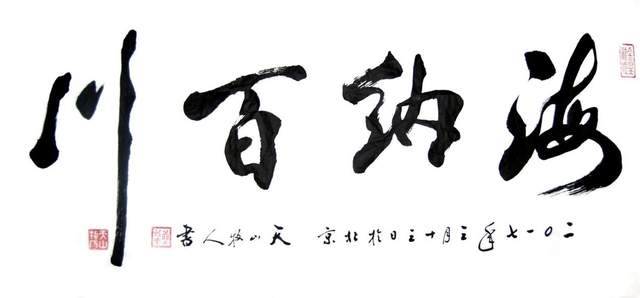 海纳百川
二〇一七年三月十三日於北京 天山牧人書